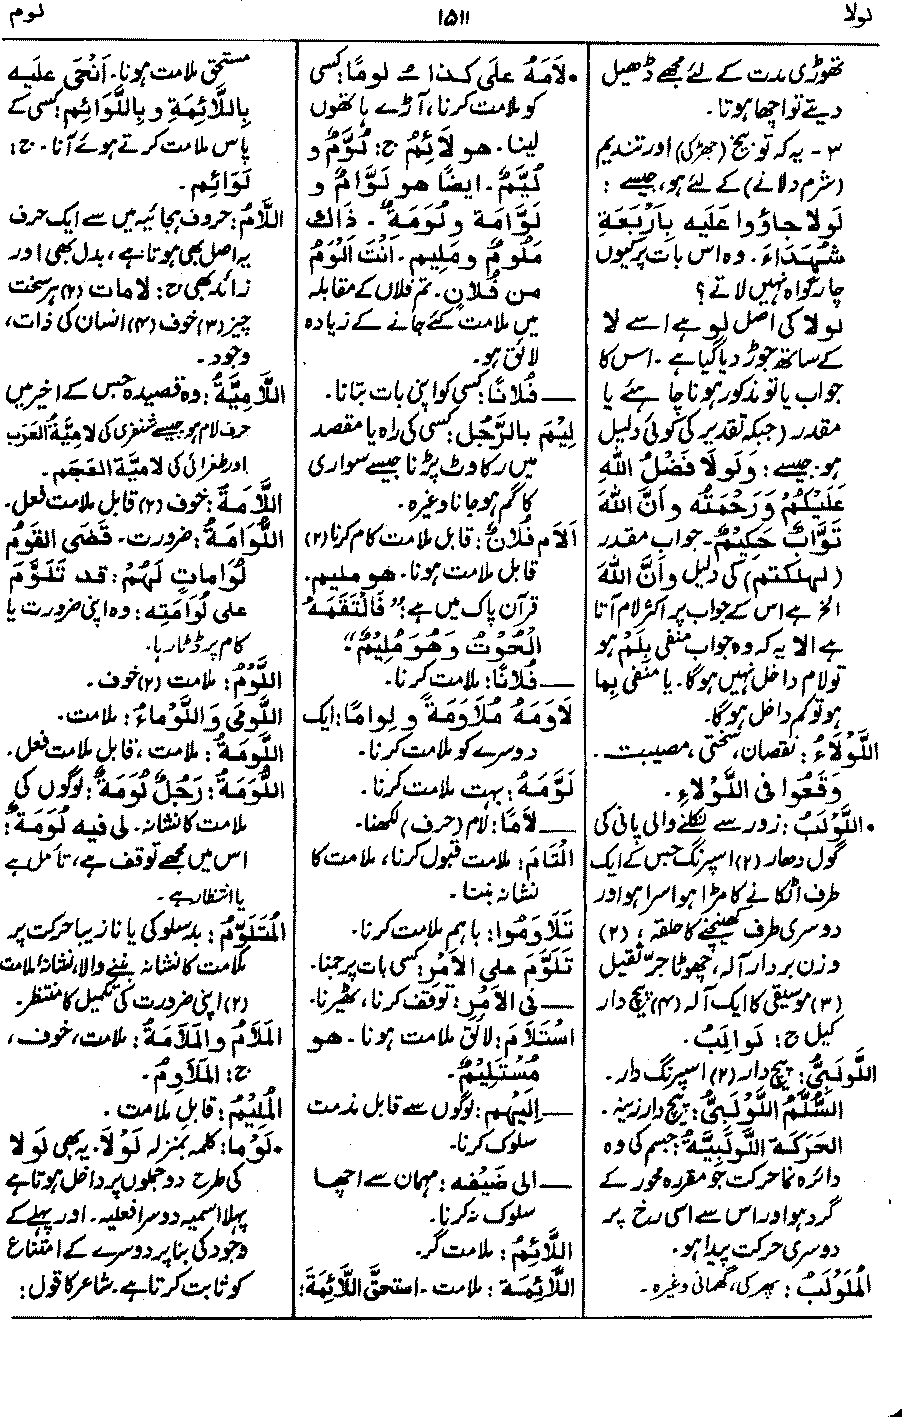 لولا
۱۵۱۱
لوم
تھوڑی مدت کے لئے مجھے ڈھیل
دیتے تو اچھا ہوتا۔
۳ - یہ کہ توبیخ (جھڑکی) اور تندیم
(شرم دلانے) کے لئے ہو، جیسے :
لَولَا جاؤوا عَلَیہ بِاَرْبَعَةِ
شُهَدَاءَ۔ وہ اس بات پر کیوں
چار گواہ نہیں لاتے؟
لولا کی اصل لو ہے اسے لا
کے ساتھ جوڑ دیا گیا ہے ۔ اس کا
جواب یا تو مذکور ہونا چاہئے یا
مقدر (جبکہ تقدیر کی کوئی دلیل
ہو جیسے : وَلَولَا فَضْلُ اللهِ
عَلَيْكُمْ وَرَحْمَتُه وأنَّ اللهَ
تَوَّابٌ حَكِيْمٌ۔ جواب مقدر
(لهلكتم) کی دلیل وأنَّ اللهَ
الخ ہے اس کے جواب پر اکثر لام آتا
ہے الا یہ کہ وہ جواب منفی بِلَمْ ہو
تو لام داخل نہیں ہوگا۔ یا منفی بِما
ہو تو کم داخل ہوگا۔
اللَّوْلَاءُ : نقصان، سختی، مصیبت ۔
وَقَعُوا فِی اللَّوْلَاءِ ۔
• اللَّوْلَبُ : زور سے نکلنے والی پانی کی
گول دھار (۲) اسپرنگ جس کے ایک
طرف اٹکانے کا مڑا ہوا سرا ہو اور
دوسری طرف کھینچنے کا حلقہ ؛ (۲)
وزن بردار آلہ، چھوٹا جرّ ثقیل
(۳) موسیقی کا ایک آلہ (۴) پیچ دار
کیل ج: لَوالِبُ.
اللَّولَبِیُّ : پیچ دار (۲) اسپرنگ دار ۔
السُّلَّمُ اللَّوْلَبِیُّ : پیچ دار زینہ ۔
الحَرَكة اللَّوْلَبِيَّة : جسم کی وہ
دائرہ نما حرکت جو مقررہ محور کے
گرد ہو اور اس سے اسی رخ پر
دوسری حرکت پیدا ہو۔
المُلَوْلَبُ : پھرکی، گھمائی وغیرہ ۔
• لَامَهُ علَى كذا ـُ لومًا : کسی
کو ملامت کرنا، آڑے ہاتھوں
لینا۔ هو لَائِمٌ ج: لُوَّمٌ و
لُيَّمٌ۔ ایضًا هو لَوَّامٌ و
لَوَّامَة ولُومَةٌ ۔ ذاك
مَلُومٌ ومَلِيم۔ أنْتَ ألْوَمُ
من فُلَانٍ۔ تم فلاں کے مقابلہ
میں ملامت کئے جانے کے زیادہ
لائق ہو۔
— فُلَانًا : کسی کو اپنی بات بتانا۔
لِيْمَ بالرَّجُل : کسی کی راہ یا مقصد
میں رکاوٹ پڑنا جیسے سواری
کا گم ہو جانا وغیرہ۔
ألَامَ فُلَانٌ : قابل ملامت کام کرنا (۲)
قابل ملامت ہونا۔ هو مليم۔
قرآن پاک میں ہے : "فَالْتَقَمَهُ
الْحُوْتُ وَهُوَ مُلِيْمٌ"۔
— فُلَانًا : ملامت کرنا۔
لَاوَمَهُ مُلَاوَمَةً و لِواما : ایک
دوسرے کو ملامت کرنا۔
لَوَّمَهُ : بہت ملامت کرنا۔
— لَامًا : لام (حرف) لکھنا۔
الْتَامَ : ملامت قبول کرنا، ملامت کا
نشانہ بننا۔
تَلَاوَمُوا : باہم ملامت کرنا۔
تَلَوَّمَ على الأمْرِ : کسی بات پر جمنا۔
— فِی الأمْرِ : توقف کرنا، ٹھیرنا۔
اسْتَلَامَ : لائق ملامت ہونا ۔ هو
مُسْتَلِيْمٌ۔
— إلَيْهِم : لوگوں سے قابل مذمت
سلوک کرنا۔
— الی ضَیْفِه : مہمان سے اچھا
سلوک نہ کرنا۔
اللَّائِمُ : ملامت گر۔
اللَّائِمَة : ملامت - استحقَّ اللَّائِمَةَ :
مستحق ملامت ہونا ۔ أنْحَى علیه
بِاللَّائِمَةِ و بِاللَّوَائِم : کسی کے
پاس ملامت کرتے ہوئے آنا ۔ ج :
لَوَائِم ۔
اللَّامُ : حروف ہجائیہ میں سے ایک حرف
یہ اصل بھی ہوتا ہے، بدل بھی اور
زائد بھی ج : لامات (۲) ہر سخت
چیز (۳) خوف (۴) انسان کی ذات،
وجود ۔
اللَّامِیَّةُ : وہ قصیدہ جس کے اخیر میں
حرف لام ہو جیسے شنفری کی لامِیَّةُ العَرَب
اور طغرائی کی لامِيَّة العَجَم ۔
اللَّامَةُ : خوف (۲) قابل ملامت فعل۔
اللُّوَامَةُ : ضرورت ۔ قَضَى القَومُ
لُوَاماتٍ لَهُمْ : قد تَلَوَّم
على لُوَامَتِه : وہ اپنی ضرورت یا
کام پر ڈٹا رہا۔
اللَّوْمُ : ملامت (۲) خوف۔
اللَّومَى وَاللَّوْماءُ : ملامت۔
اللَّومَةُ : ملامت، قابل ملامت فعل۔
اللُّوَمَةُ : رَجُلٌ لُوَمَةٌ : لوگوں کی
ملامت کا نشانہ ۔ لی فیه لُومَةٌ :
اس میں مجھے توقف ہے، تامل ہے
یا انتظار ہے ۔
المُتَلَوِّمُ : بدسلوکی یا نازیبا حرکت پر
ملامت کا نشانہ بننے والا، نشانہ ملامت
(۲) اپنی ضرورت کی تکمیل کا منتظر۔
المَلَامُ والمَلَامَةُ : ملامت، خوف،
ج : المَلَاوِمُ۔
المُلِيْمُ : قابل ملامت ۔
• لَوْمَا : کلمہ بمنزلہ لَوْلَا۔ یہ بھی لَولا
کی طرح دو جملوں پر داخل ہوتا ہے
پہلا اسمیہ دوسرا فعلیہ ۔ اور پہلے کے
وجود کی بنا پر دوسرے کے امتناع
کو ثابت کرتا ہے ۔ شاعر کا قول :